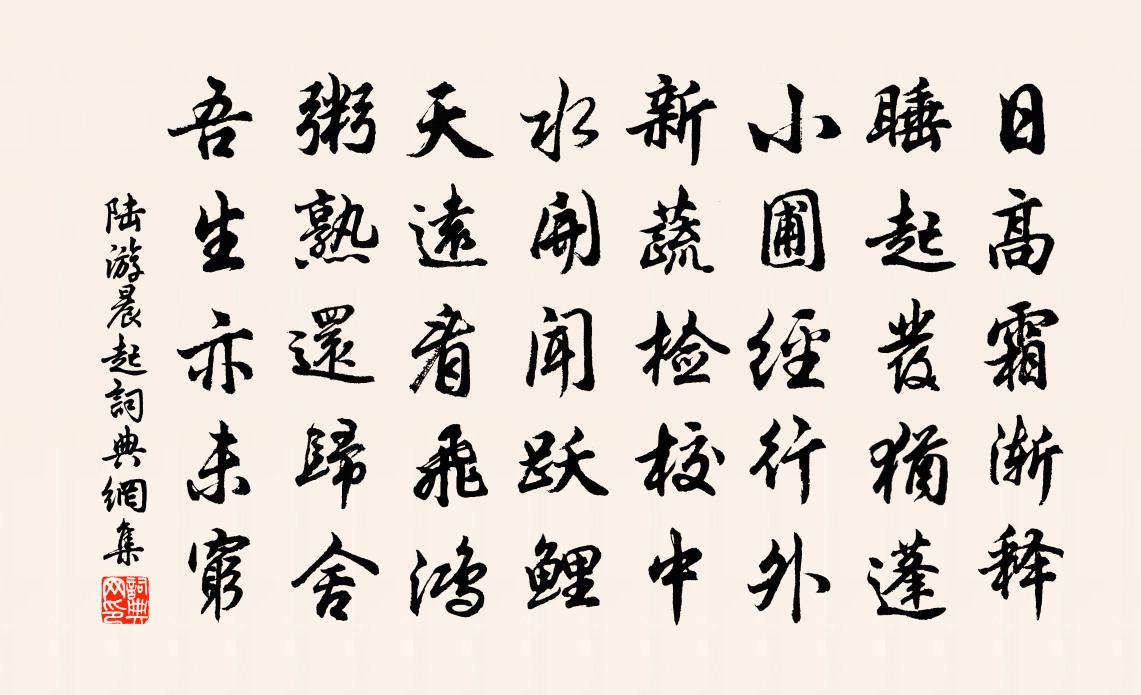 日高霜渐释
睡起发猶蓬
小圃經行外
新蔬检校中
水開闻跃鲤
天遠看飛鸿
粥熟還歸舍
吾生亦未窮
陆游晨起詞典網集
詞典网印